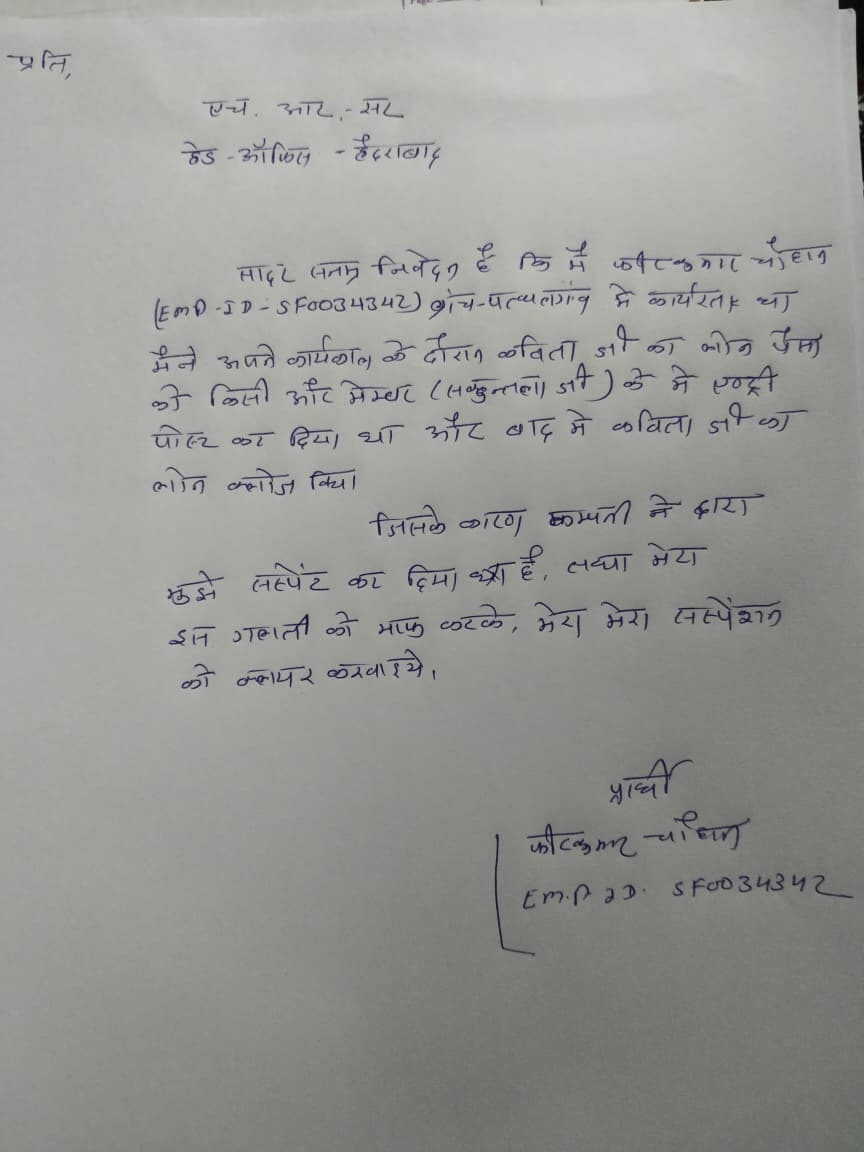 प्रति,
एच. आर. - सर
हेड - ऑफिस - हैदराबाद
सादर सनम्र निवेदन है कि मैं फीटकुमार चौहान
(EMP-ID-SF0034342) ब्रांच-पत्थलगांव में कार्यरत था
मैंने अपने कार्यकाल के दौरान कविता जी का लोन पैसा
को किसी और मेम्बर (सकुन्तला जी) के में एण्ट्री
पोस्ट कर दिया था और बाद में कविता जी का
लोन क्लोज किया
जिसके कारण कम्पनी के द्वारा
मुझे सस्पेंट कर दिया है, तथा मेरा
इस गलती को माफ करके, मेरा मेरा सस्पेंशन
को क्लीयर करवाइये,
प्रार्थी
फीटकुमार चौहान
EM.P ID. SF0034342